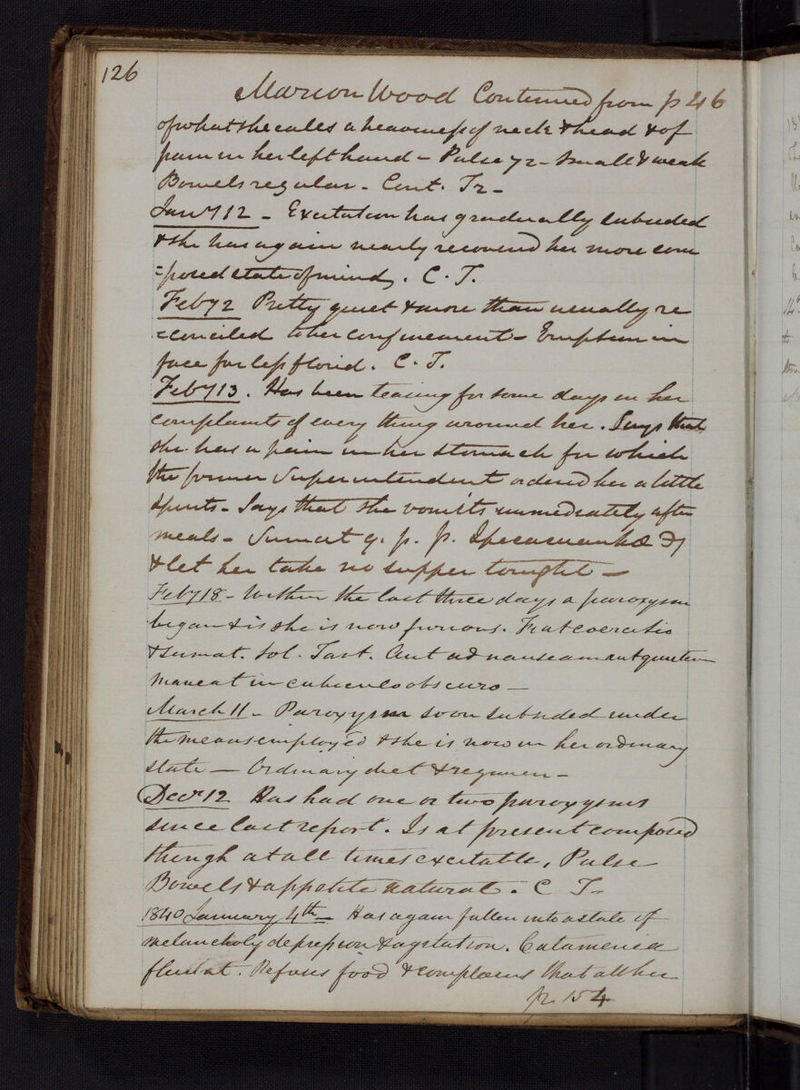 126
Marion Wood Continued from p 46
of what she calls a heaviness of neck & head & of
pain in her left hand - Pulse 72 - Small & weak
Bowels regular - Cont. Tr -
Jany 12 - Excitation has gradually subsided
& she has again nearly recovered her more com
=posed state of mind. C. T.
Feby 2 Pretty quiet & more than usually re
=conciled to her confinement - Eruption in
face far less florid. C. T.
Feby 13. Has been teasing for some days in her
complaints of every thing around her. Says that
she has a pain in her stomach for which
the former Superintendent ordered her a little
spirits - Says that she vomits immediately after
meals - Sumat q. p. p. Ipecacuanhae
& let her take no supper tonight -
Feby 18 - Within the last three days a paroxysm
began & is she is now furious. Fiat coercitio
& Sumat. Sol. Tart. Ant ad nauseam aut quietem
Maneat in cubiculo obscuro -
March 11 - Paroxysm soon subsided under
the means employed & she is now in her ordinary
state - Ordinary diet & regimen -
Decr 12 Has had one or two paroxysms
since last report. Is at present composed
though at all times excitable, Pulse
Bowels & appetite natural. C T-
1840 January 4th - Has again fallen into a state of
melancholy depression & agitation. Catamenia
fluunt. Refuses food & complains that all her
p. 154